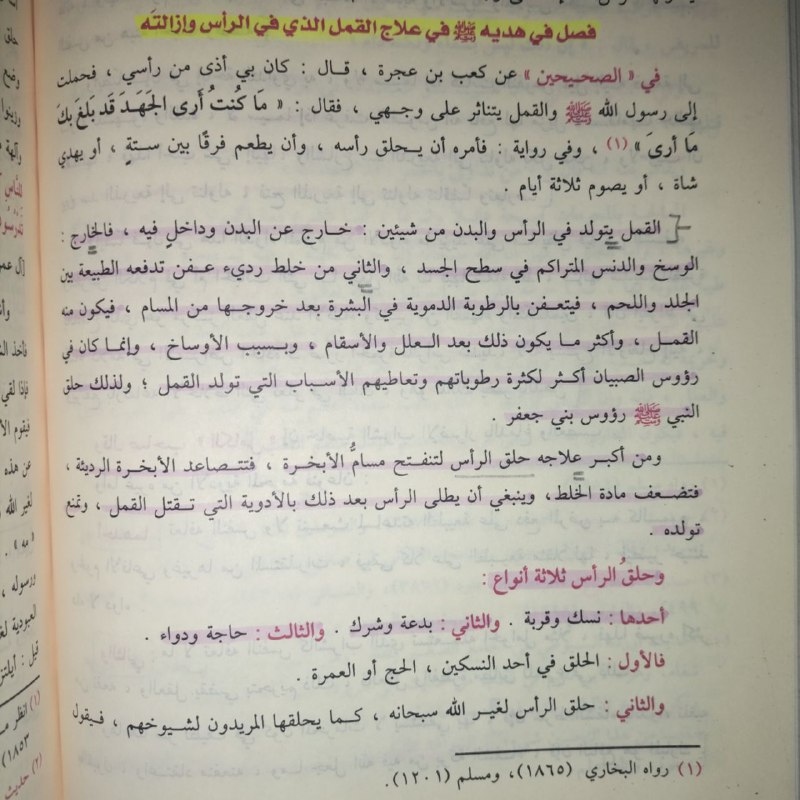 فصل في هديه ﷺ في علاج القمل الذي في الرأس وإزالته
في « الصحيحين » عن كعب بن عجرة ، قال : كان بي أذى من رأسي ، فحملت
إلى رسول الله ﷺ والقمل يتناثر على وجهي ، فقال : « مَا كُنتُ أَرى الجَهَدَ قَد بَلَغَ بِكَ
مَا أَرىَ » (١) ، وفي رواية : فأمره أن يحلق رأسه ، وأن يطعم فرقًا بين ستةٍ ، أو يهدي
شاة ، أو يصوم ثلاثة أيام .
القمل يتولد في الرأس والبدن من شيئين : خارج عن البدن وداخلٍ فيه ، فالخارج :
الوسخ والدنس المتراكم في سطح الجسد ، والثاني من خلط رديء عفن تدفعه الطبيعة بين
الجلد واللحم ، فيتعفن بالرطوبة الدموية في البشرة بعد خروجها من المسام ، فيكون منه
القمل ، وأكثر ما يكون ذلك بعد العلل والأسقام ، وبسبب الأوساخ ، وإنما كان في
رؤوس الصبيان أكثر لكثرة رطوباتهم وتعاطيهم الأسباب التي تولد القمل ؛ ولذلك حلق
النبي ﷺ رؤوس بني جعفر .
ومن أكبر علاجه حلق الرأس لتنفتح مسامُّ الأبخرة ، فتتصاعد الأبخرة الرديئة ،
فتضعف مادة الخلط، وينبغي أن يطلى الرأس بعد ذلك بالأدوية التي تقتل القمل ، وتمنع
تولده .
وحلقُ الرأس ثلاثة أنواع :
أحدها : نسك وقربة . والثاني : بدعة وشرك . والثالث : حاجة ودواء .
فالأول : الحلق في أحد النسكين ، الحج أو العمرة .
والثاني : حلق الرأس لغير الله سبحانه ، كما يحلقها المريدون لشيوخهم ، فيقول
(١) رواه البخاري (١٨٦٥)، ومسلم (١٢٠١).